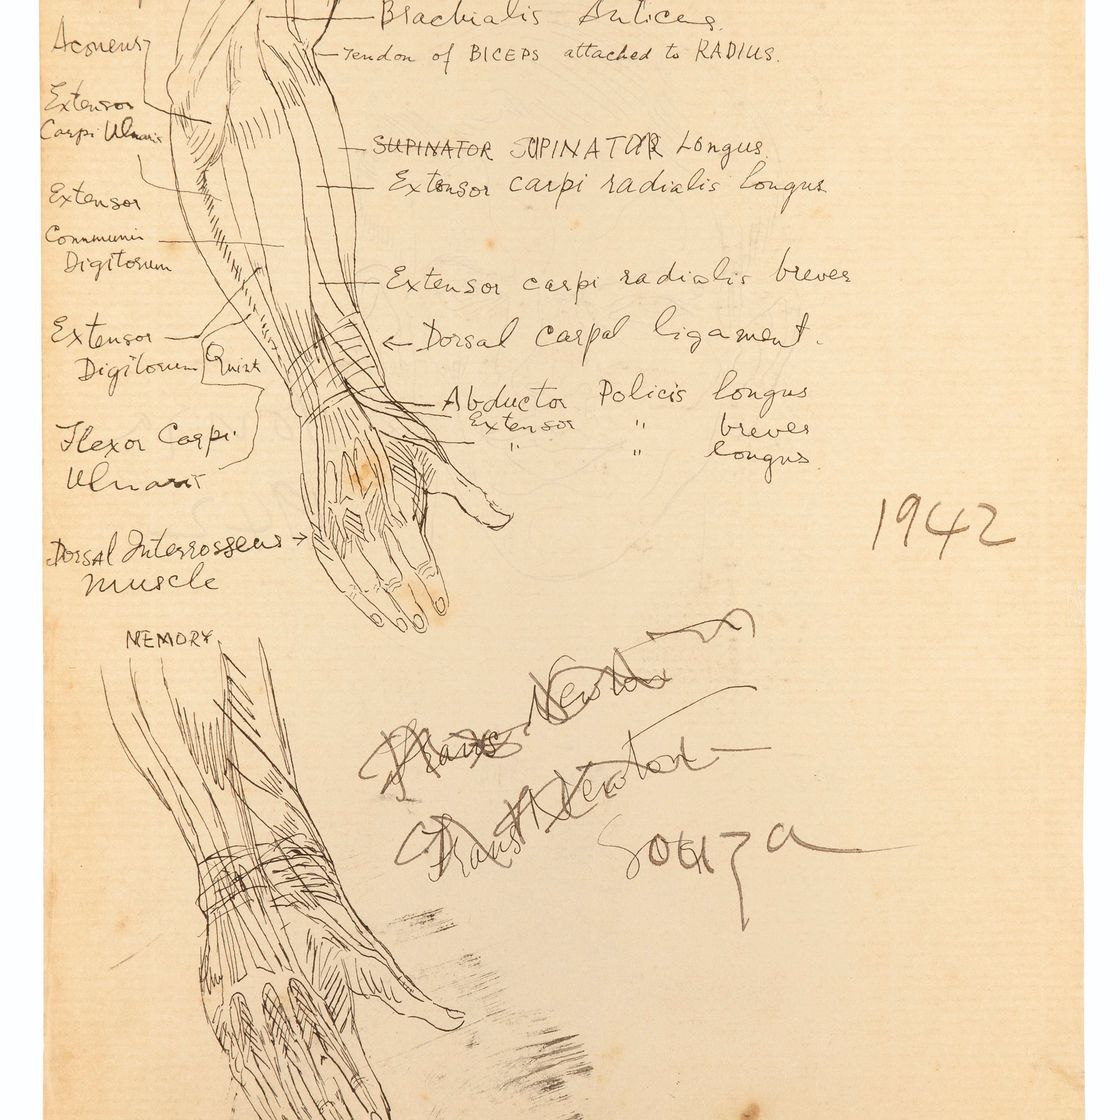 Brachialis Anticus.
Aconeus
Tendon of BICEPS attached to RADIUS.
Extensor
Carpi Ulnaris
SUPINATOR SUPINATOR Longus.
Extensor carpi radialis longus
Extensor
Communis
Digitorum
Extensor carpi radialis breves
Extensor
Digitorum Quint
Dorsal carpal ligament.
Abductor Policis longus
Extensor " breves
" " longus.
Flexor Carpi
Ulnaris
1942
Dorsal Interrosseus
muscle
MEMORY.
Frans Newton
Frans Newton
Souza